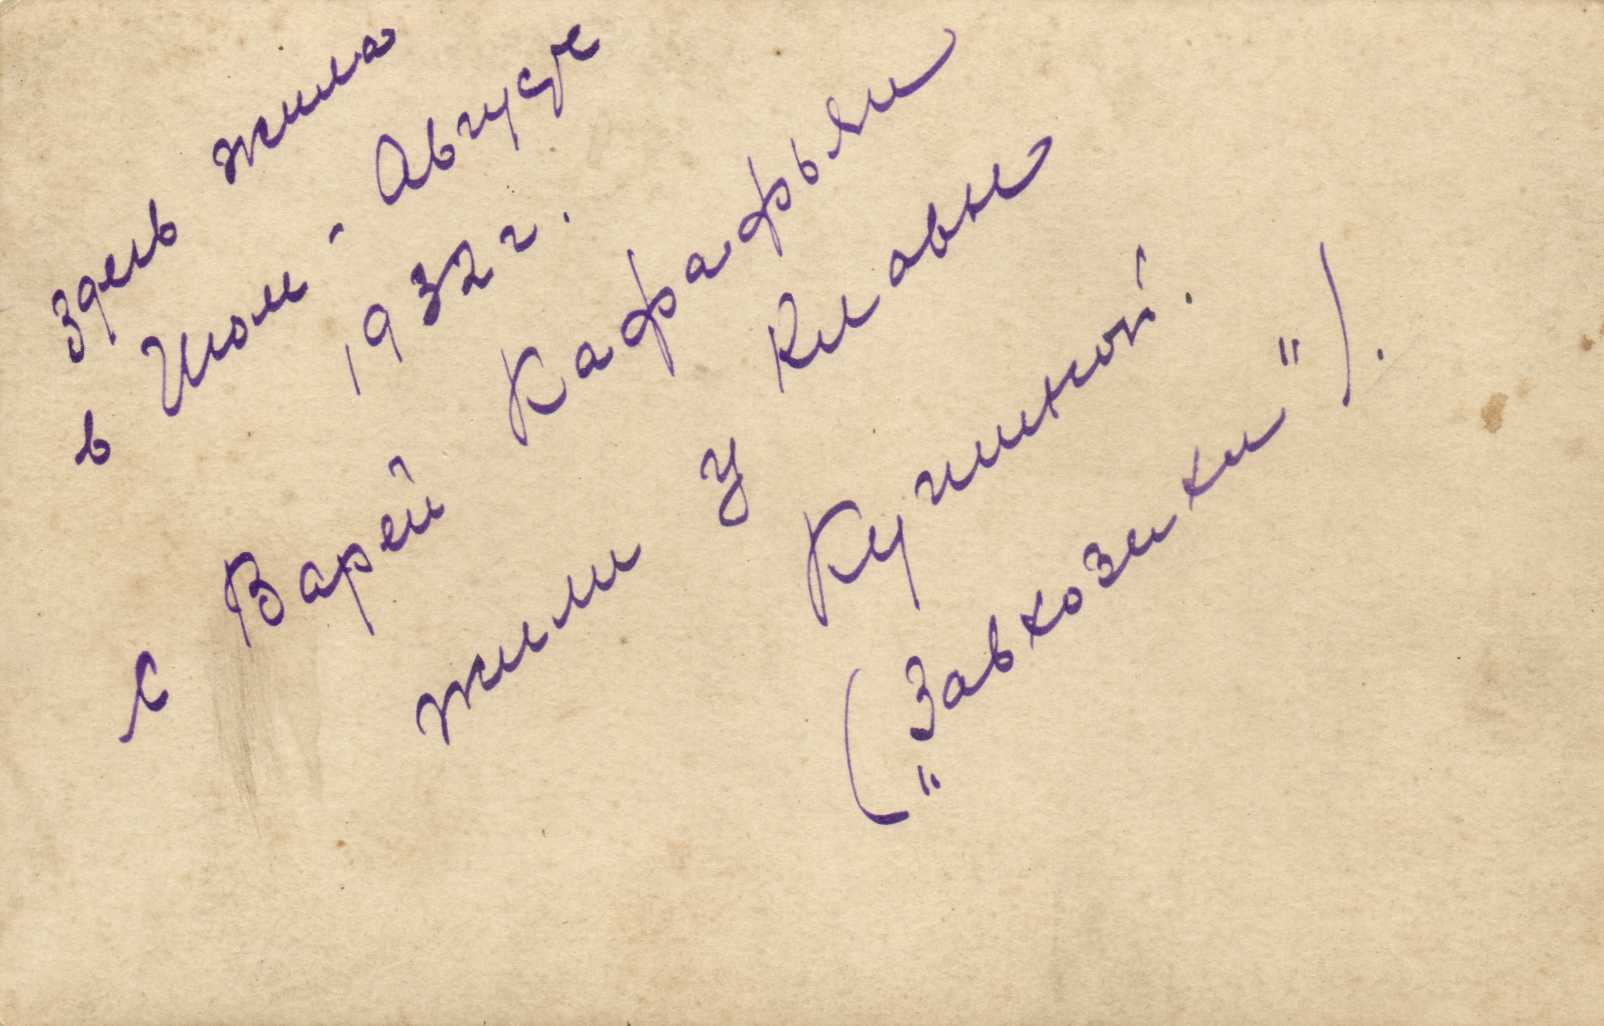 здесь жила
в Июле - Августе
1932 г.
с Варей Кафафьян
жили у Клавы
Кушиной.
(„Завхозихи").